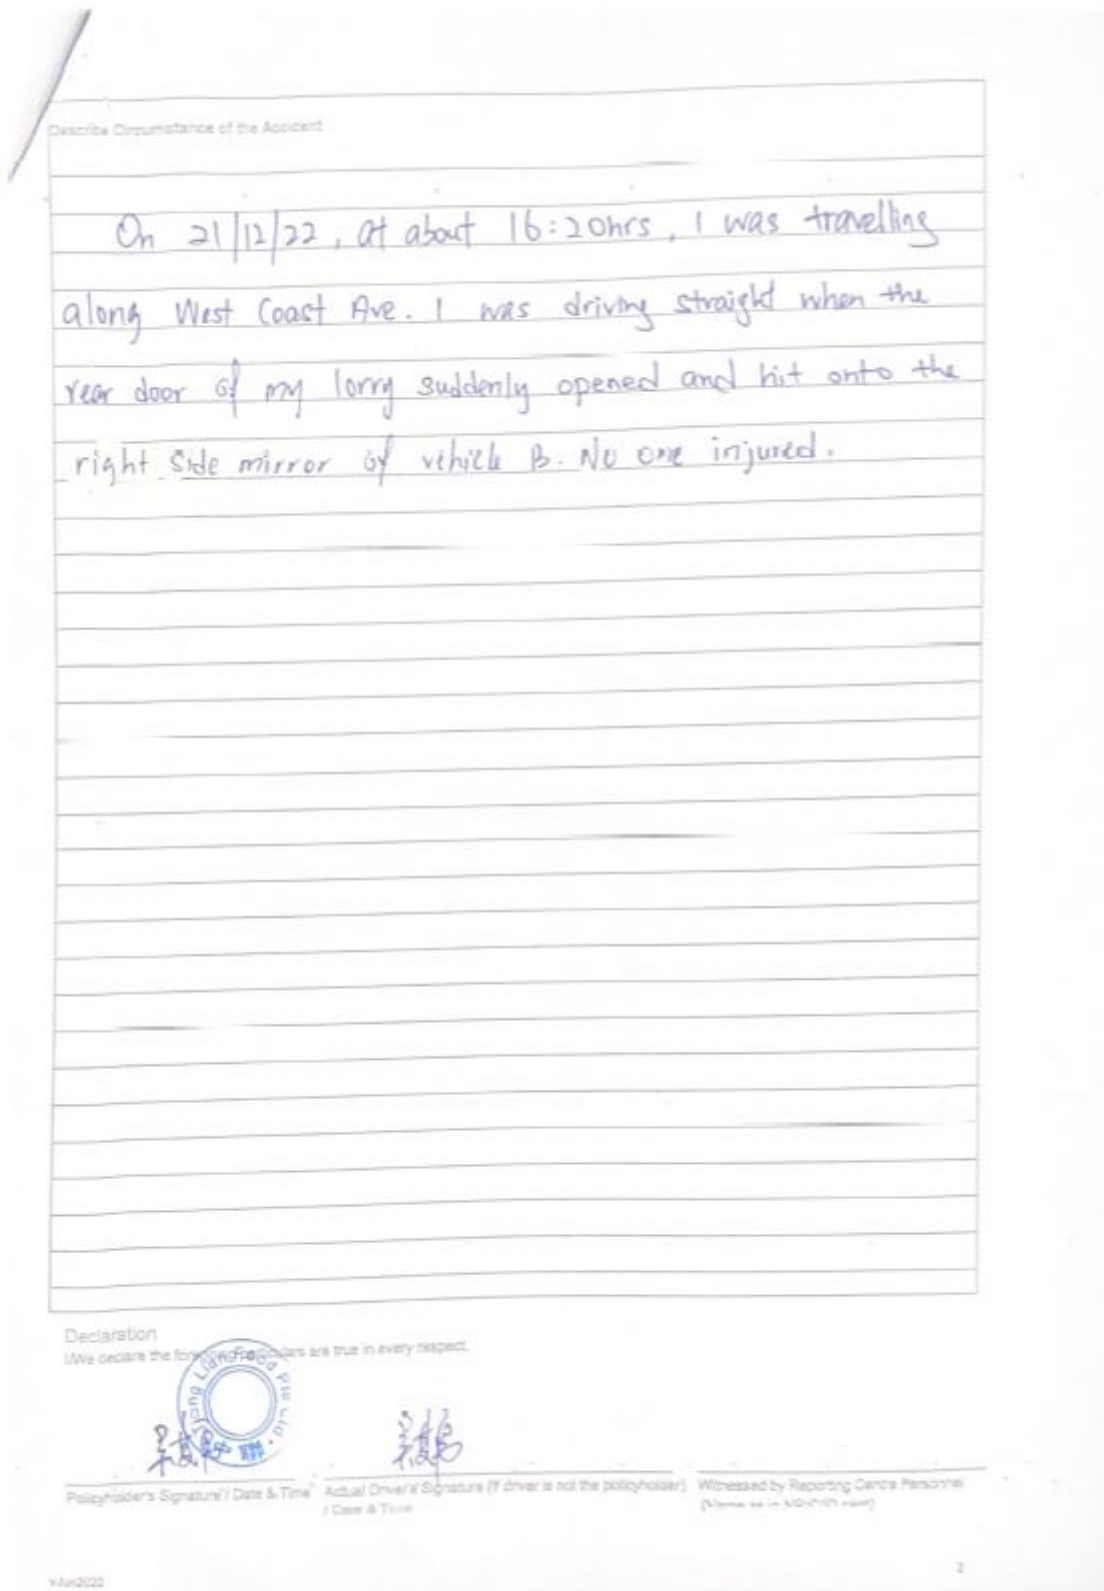 Describe Circumstance of the Accident
On 21/12/22, at about 16:20hrs, I was travelling
along West Coast Ave. I was driving straight when the
rear door of my lorry suddenly opened and hit onto the
right side mirror of vehicle B. No one injured.
Declaration
I/We declare the foregoing particulars are true in every respect.
Liang Food Pte Ltd
聯
Policyholder's Signature / Date & Time
Actual Driver's Signature (if driver is not the policyholder)
/ Date & Time
Witnessed by Reporting Centre Personnel
(Name as in NRIC/ID card)
vJun2022
2